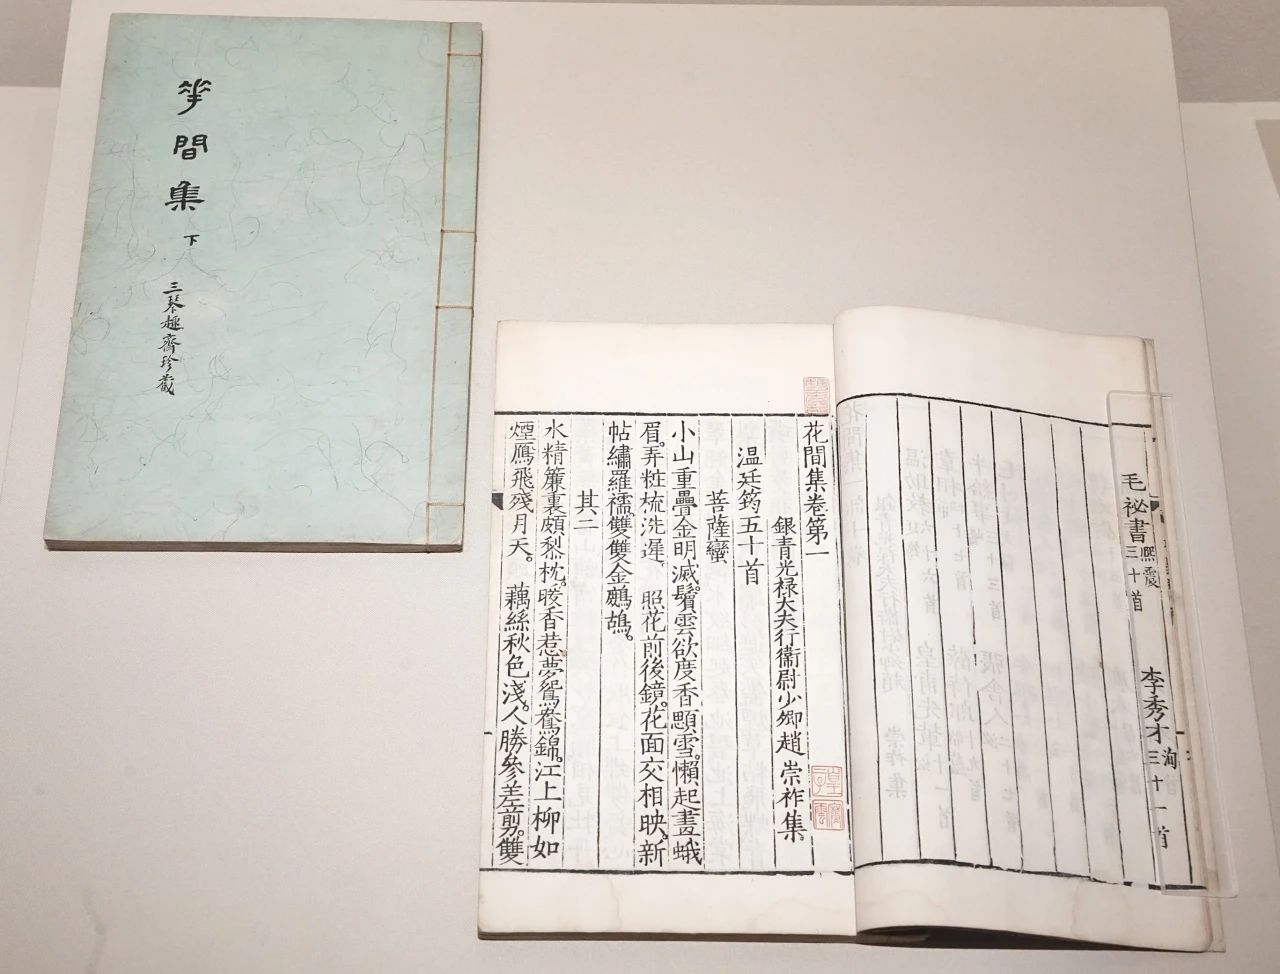 花間集
下
三琴趣齋珍藏
毛祕書熙震三十首
李秀才洵三十一首
花間集卷第一
銀青光禄大夫行衞尉少卿趙 崇祚集
温廷筠五十首
菩薩蠻
小山重疊金明滅鬢雲欲度香顋雪。懶起畫蛾
眉。弄粧梳洗遲。 照花前後鏡。花面交相映。新
帖繡羅襦。雙雙金鷓鴣。
其二
水精簾裏頗黎枕。暖香惹夢鴛鴦錦。江上柳如
煙鴈飛殘月天。 藕絲秋色淺。人勝參差剪。雙